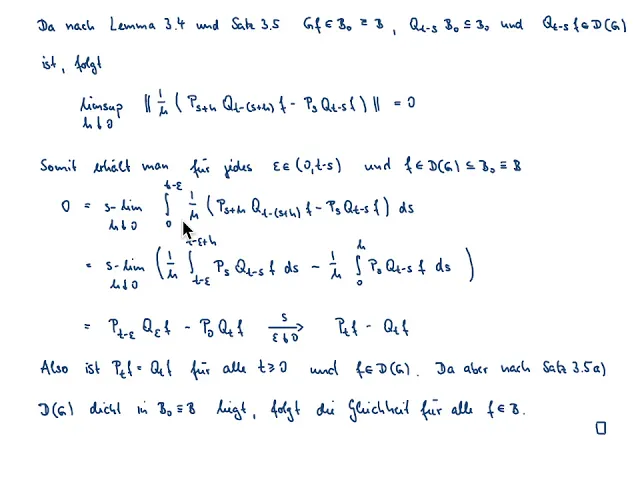 Da nach Lemma 3.4 und Satz 3.5 Gf ∈ B₀ ≡ B, Q_{t-s} B₀ ⊆ B₀ und Q_{t-s} f ∈ D(G)
ist, folgt
limsup_{h↓0} ‖ 1/h ( P_{s+h} Q_{t-(s+h)} f - P_s Q_{t-s} f ) ‖ = 0
Somit erhält man für jedes ε ∈ (0, t-s) und f ∈ D(G) ⊆ B₀ ≡ B
0 = s-lim_{h↓0} ∫_0^{t-ε} 1/h ( P_{s+h} Q_{t-(s+h)} f - P_s Q_{t-s} f ) ds
= s-lim_{h↓0} ( 1/h ∫_{t-ε}^{t-ε+h} P_s Q_{t-s} f ds - 1/h ∫_0^h P_s Q_{t-s} f ds )
= P_{t-ε} Q_ε f - P_0 Q_t f →^s_{ε↓0} P_t f - Q_t f
Also ist P_t f = Q_t f für alle t ≥ 0 und f ∈ D(G). Da aber nach Satz 3.5a)
D(G) dicht in B₀ ≡ B liegt, folgt die Gleichheit für alle f ∈ B.
□